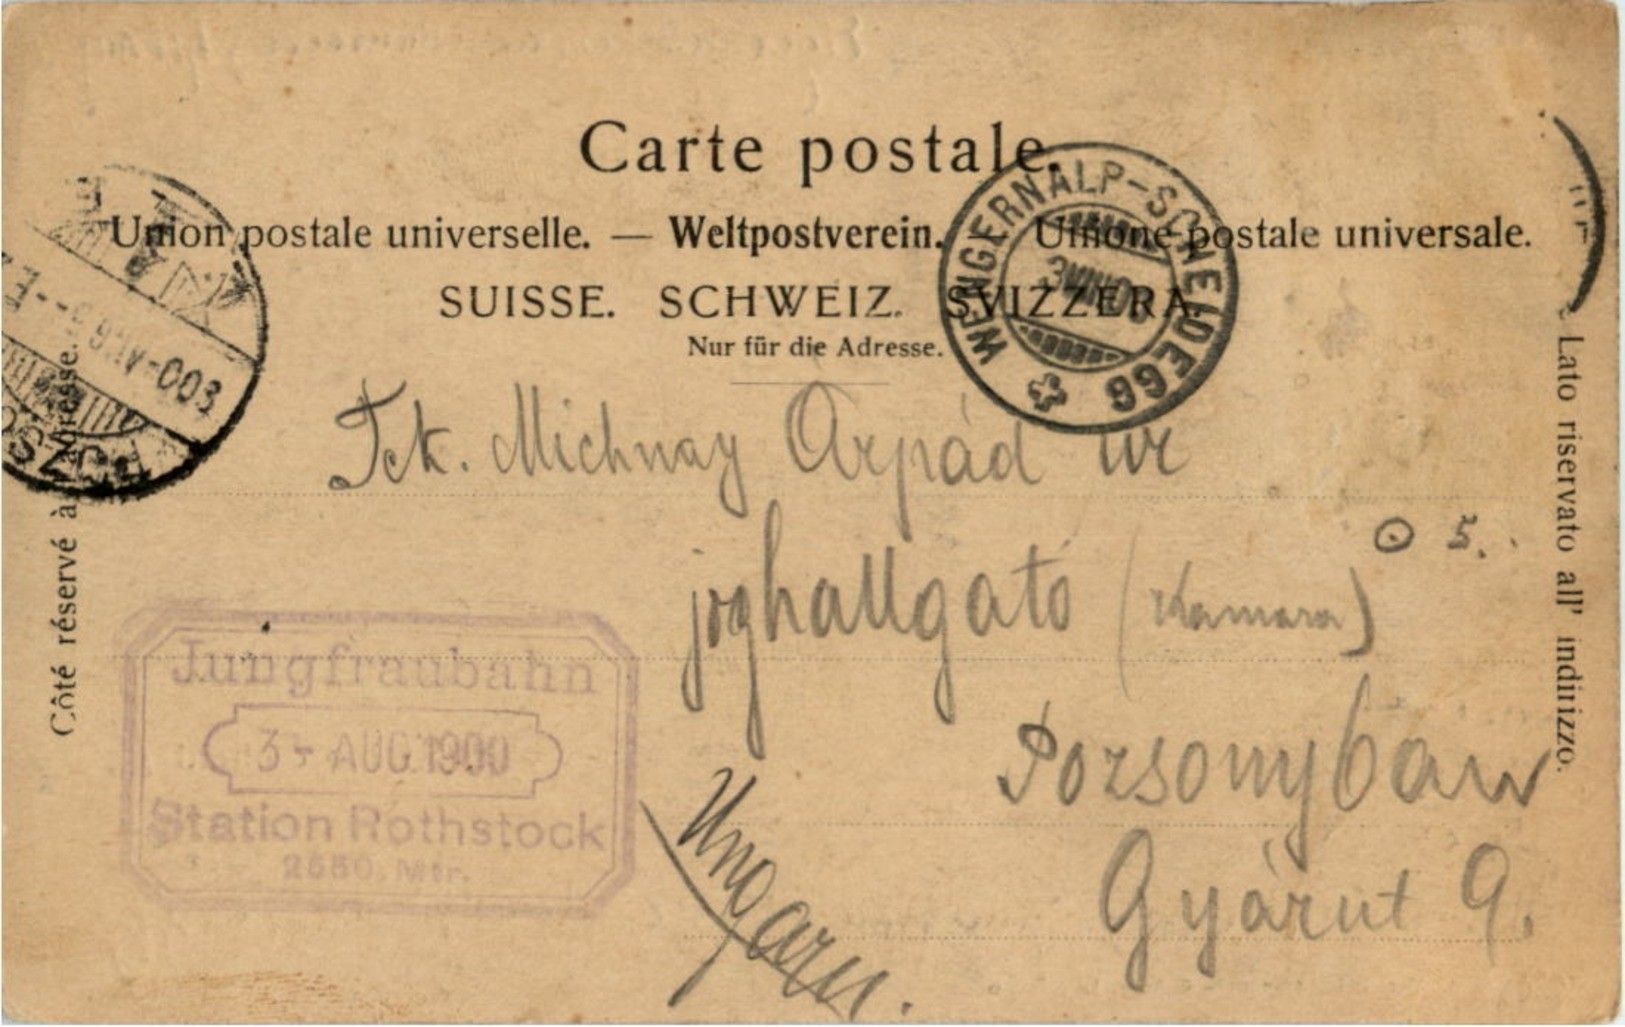 Carte postale.
Union postale universelle. — Weltpostverein. Unione postale universale.
SUISSE. SCHWEIZ. SVIZZERA.
Nur für die Adresse.
WENGERNALP-SCHEIDEGG
Côté réservé à l'adresse.
Lato riservato all' indirizzo.
Tek. Michnay Árpád úr
joghallgató (Kamara)
⊙ 5.
Pozsonyban
Gyárut 9.
Ungarn.
Jungfraubahn
3 - AUG. 1900
Station Rothstock
2530. Mtr.